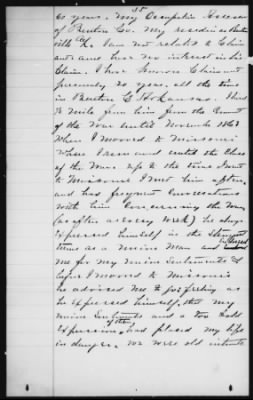 35
60 years. My Occupation Assessor
of Benton Co. My residence Benton
ville Ark. I am not related to Claim
ant and have no interest in his
Claim. I have known Claimant
personally 20 years. all the time
in Benton Co Arkansas. lived
¾ mile from him from the Commt
of the War until November 1863
When I moved to Missouri
Where I remained until the Close
of the War. up to the time I went
to Missouri I met him often,
and had frequent Conversations
with him Concerning the War,
(as often as every week) he always
Expressed himself in the Strongest
terms as a union man and endorsed
me for my union Sentiments &
before I moved to Missouri
he advised me to go: feeling as
he expressed himself, that my
union Sentiments and a too bold
Expression of them had placed my life
in danger. We were old intimate